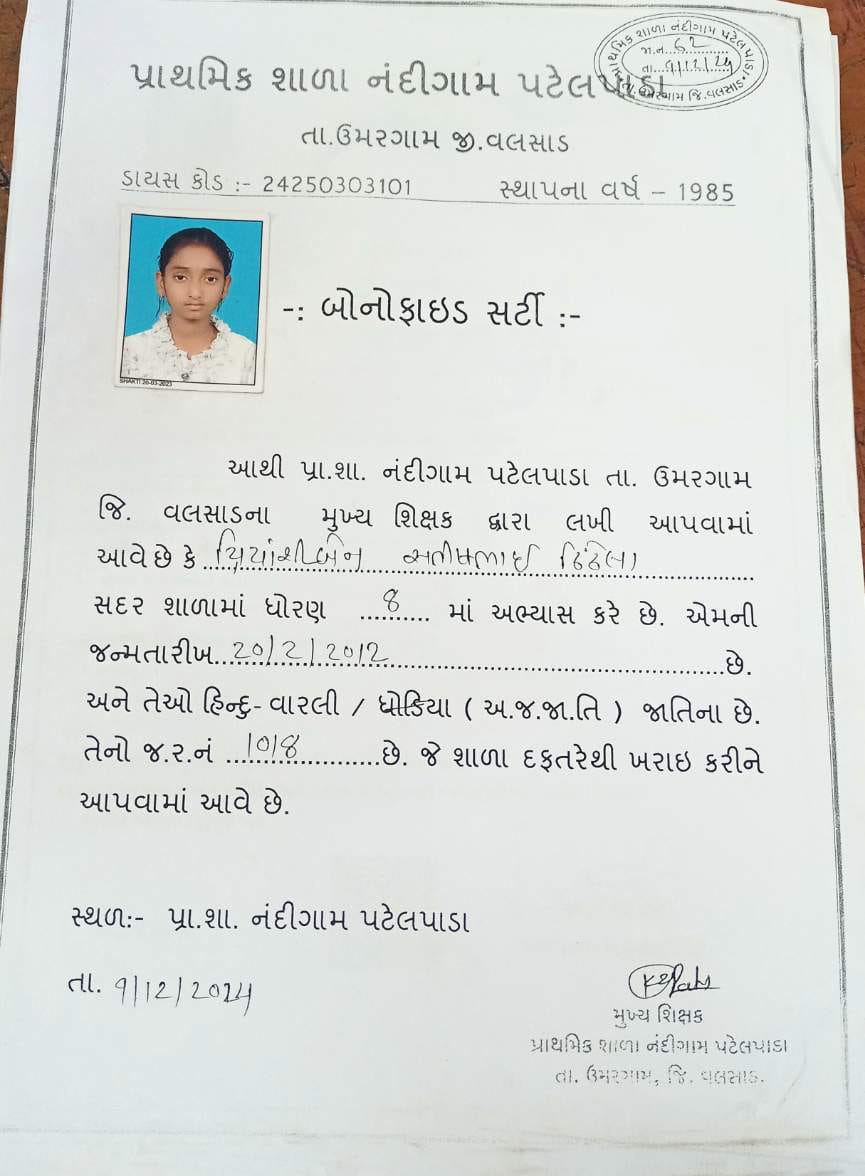 પ્રાથમિક શાળા નંદીગામ પટેલપાડા
પ્રાથમિક શાળા નંદીગામ પટેલપાડા
જા.નં. ૬૨
તા. ૧/૧૨/૨૪
તા. ઉમરગામ જિ.વલસાડ
તા.ઉમરગામ જી.વલસાડ
ડાયસ કોડ :- 24250303101 સ્થાપના વર્ષ – 1985
SHAKTI 20-03-2023
-: બોનોફાઇડ સર્ટી :-
આથી પ્રા.શા. નંદીગામ પટેલપાડા તા. ઉમરગામ
જિ. વલસાડના મુખ્ય શિક્ષક દ્વારા લખી આપવામાં
આવે છે કે
સદર શાળામાં ધોરણ ૮ માં અભ્યાસ કરે છે. એમની
જન્મતારીખ 20/2/2012 છે.
અને તેઓ હિન્દુ- વારલી / ધોડિયા ( અ.જ.જા.તિ ) જાતિના છે.
તેનો જ.ર.નં 101૮ છે. જે શાળા દફતરેથી ખરાઇ કરીને
આપવામાં આવે છે.
સ્થળ:- પ્રા.શા. નંદીગામ પટેલપાડા
તા. ૧/12/2024
મુખ્ય શિક્ષક
પ્રાથમિક શાળા નંદીગામ પટેલપાડા
તા. ઉમરગામ, જિ. વલસાડ.